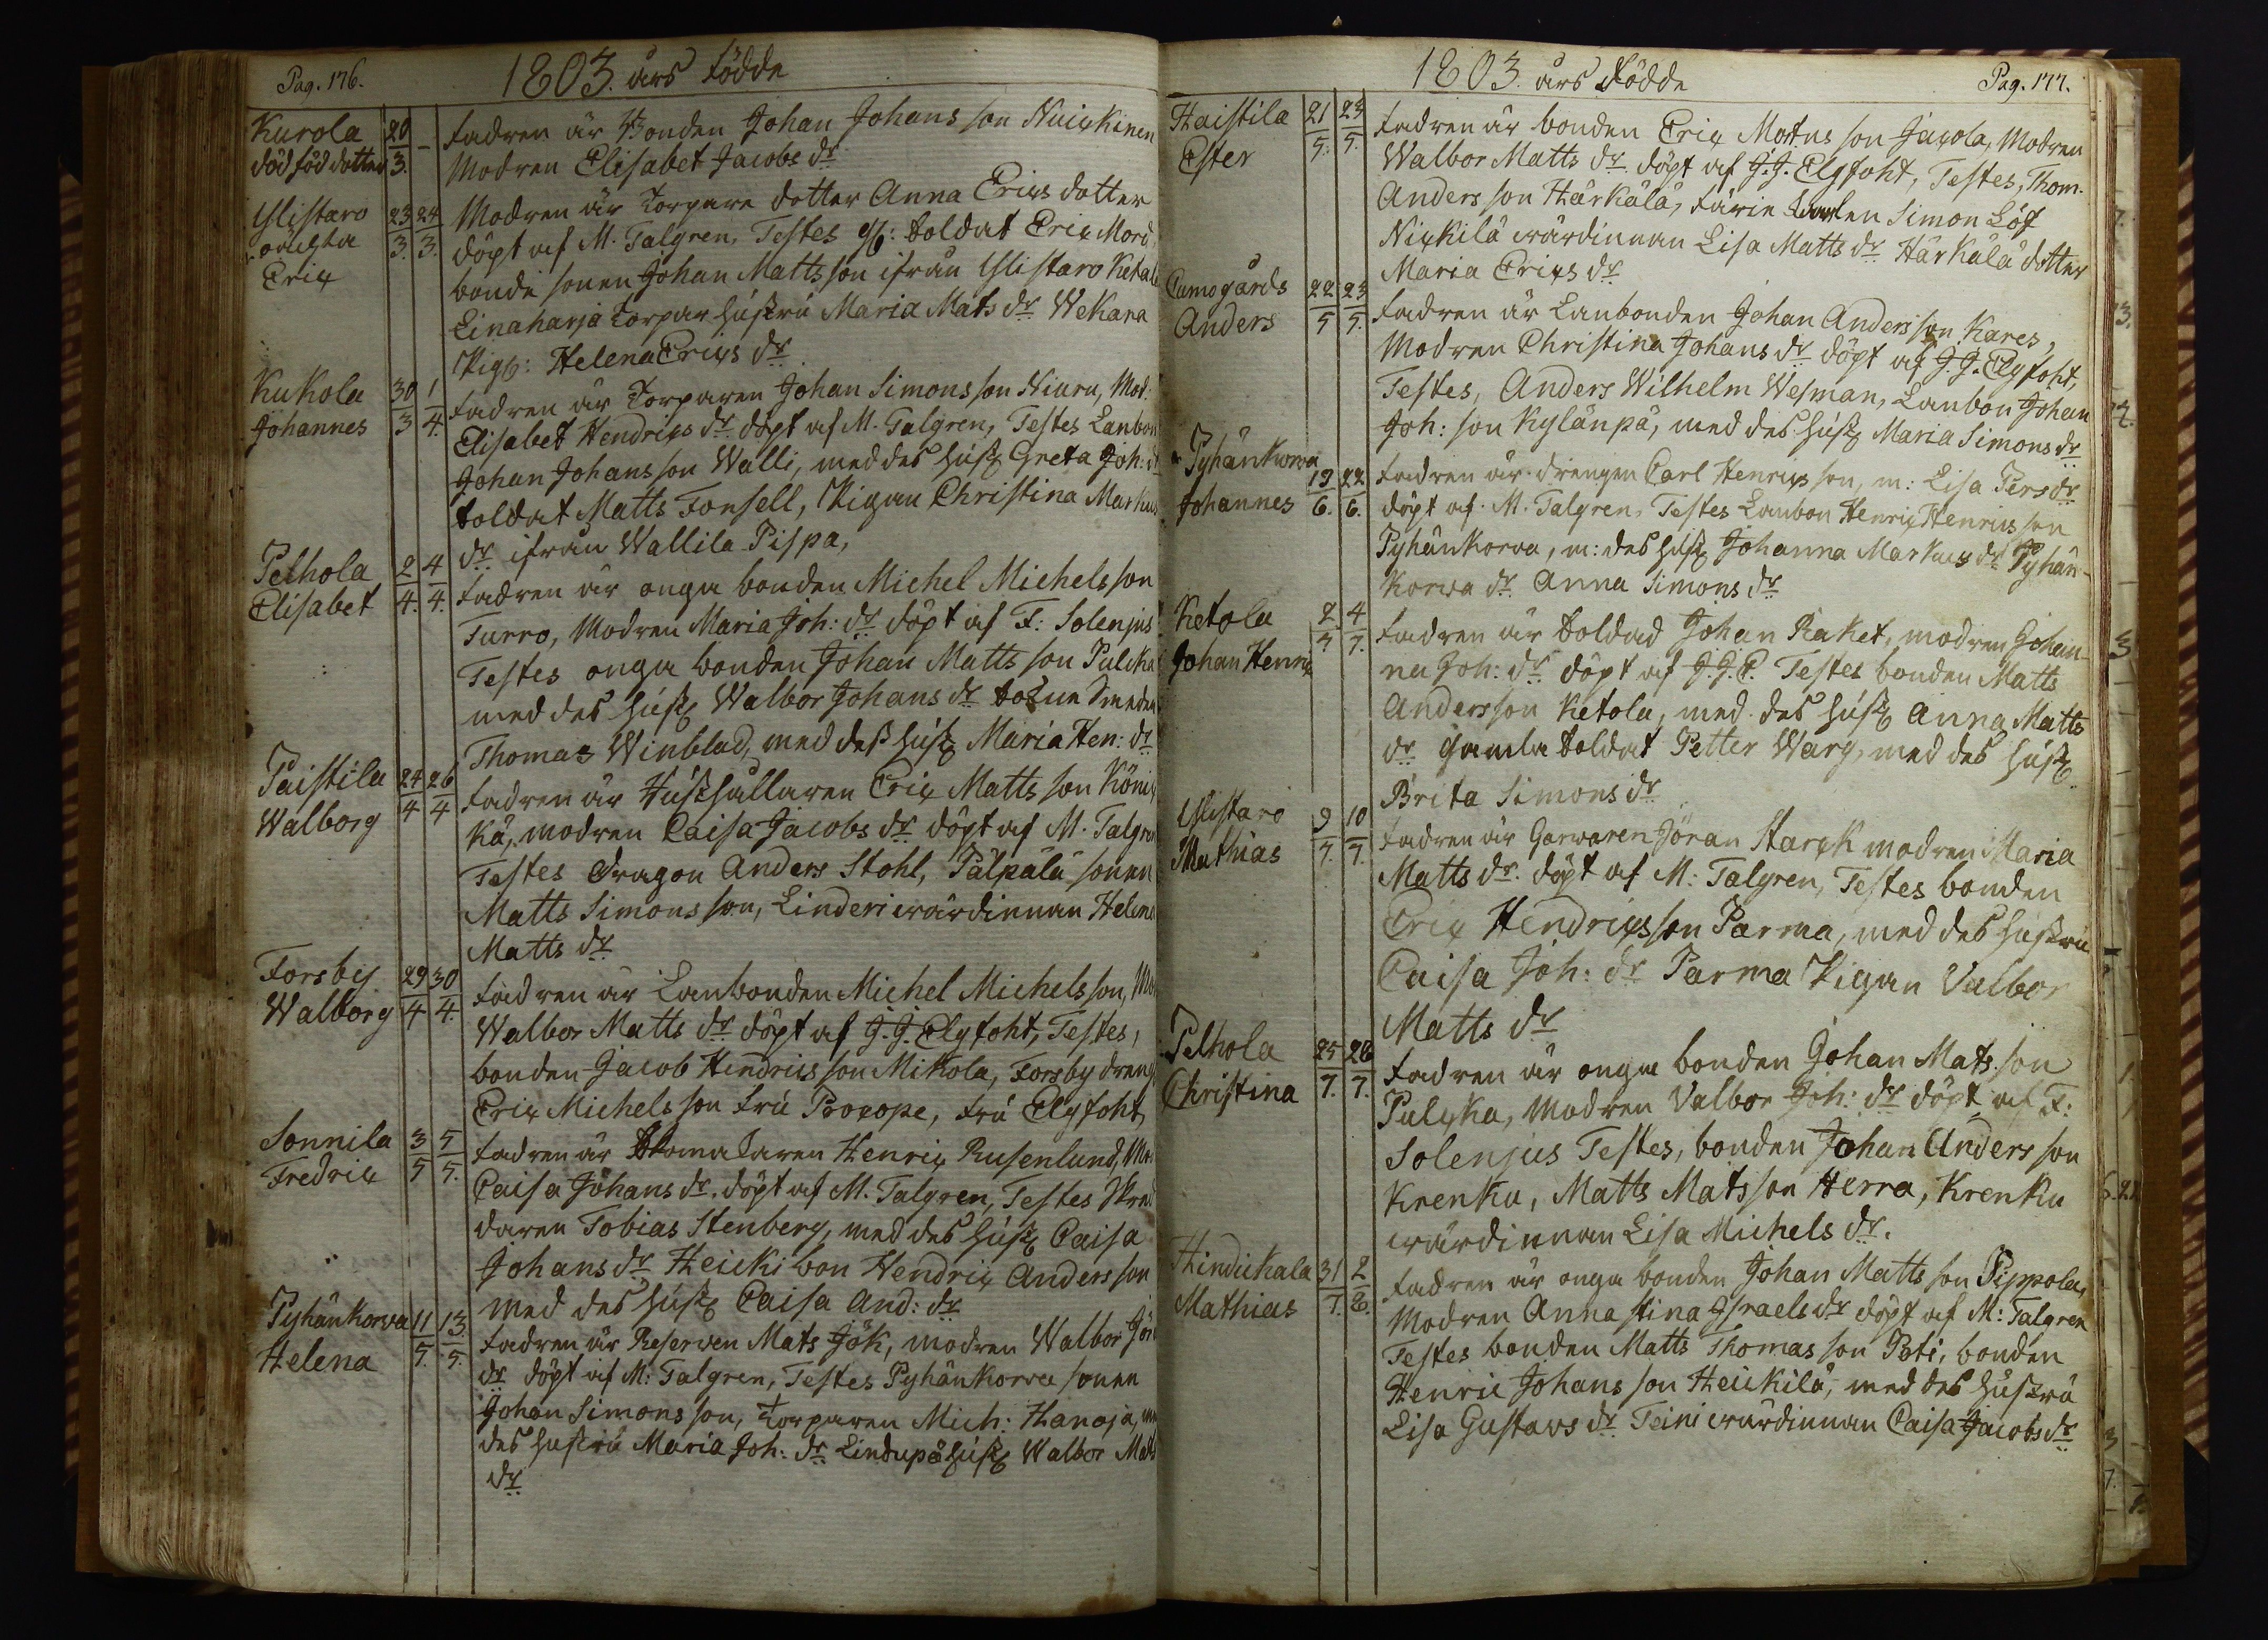 Pag. 176. 1803. års födde
Kurola 20/3. – fadren är Bonden Johan Johans son Nuickinen
död föd dotter Modren Elisabet Jacobs dr
Ylistaro 23/3. 24/3. Modren är torpare dotter Anna Erics dotter
oächta döpt af M. Talgren, Testes soldat Eric Mord,
Eric bonde sonen Johan Matts son ifrån Ylistaro Ketala
Linaharja torpar hústrú Maria Mats dr Wekara
Pig: Helena Erics dr
Kukola 30/3 1/4. fadren är torparen Johan Simons son Niuru, Mod:
Johannes Elisabet Hendrics dr döpt af M. Talgren, Testes Lanbon
Johan Johans son Walli, med des húst Greta Joh: dr
soldat Matts Fonsell, Pigan Christina Markus
dr ifrån Wallila Pispa,
Pelhola 2/4. 4/4. fadren är unga bonden Michel Michels son
Elisabet Turro, Modren Maria Joh: dr döpt af F: Solenius
Testes unga bonden Johan Matts son Pulcka
med des húst Walbor Johans dr sokne smeden
Thomas Winblad, med dess húst Maria Hen: dr
Paistila 24/4 26/4 fadren är Húshållaren Eric Matts son Könic
Walborg kä, modren Caisa Jacobs dr döpt af M. Talgren
Testes dragon Anders Stohl, Pälpälä sonen
Matts Simons son, Linderi wärdinnan Helena
Matts dr
Forsby 29/4 30/4. fadren är Lanbonden Michel Michels son, Mo
Walborg Walbor Matts dr döpt af J. J. Elgfoht, Testes,
bonden Jacob Hindrics son Mikola, Forsby dreng
Eric Michels son frú Procope, frú Elgfoht,
Sonnila 3/5 5/5. fadren är Henric Rusenlund, Mo
Fredric Caisa Johans dr. döpt af M. Talgren, Testes skred
daren Tobias Stenberg, med des húst Caisa
Johans dr Heicki bon Hendric Anders son
med des húst Caisa And: dr
Pyhänkorwa 11/5. 13/5. fadren är Reserven Mats Jök, modren Walbor Jör
Helena dr döpt af M: Talgren, Testes Pyhänkorva sonen
Johan Simons son, torparen Mich: Hanoja, m
des hustrú Maria Joh: dr Lindupä húst Walbor Matts
dr
1803. års Födde Pag. 177.
Haistila 21/5. 23/5. fadren är bonden Eric Mat:us son Jacola, Modren
Ester Walbor Matts dr döpt af J. J. Elgfoht, Testes, Thom.
Anders son Härkälä, färie karlen Simon Löf
Nickilä wärdinnan Lisa Matts dr Härkälä dotter
Maria Erics dr
Cumogårds 22/5 23/5. fadren är Lanbonden Johan Anders son Kares,
Anders Modren Christina Johans dr döpt af J. J. Elgfoht,
Testes, Anders Wilhelm Wesman, Lanbon Johan
Joh: son Kylänpä, med des húst Maria Simons dr
Pyhänkorva 19/6. 22/6. fadren är drengen Carl Henrics son, m: Lisa Pers dr
Johannes döpt af M. Talgren, Testes Lanbon Henric Henrics son
Pyhänkorva, m: des húst Johanna Markus dr Pyhän-
korva dr Anna Simons dr
Ketola 2/7 4/7. fadren är soldad Johan Raket, modren Johan-
Johan Henric na Joh: dr döpt af J. J. E. Testes bonden Matts
Anders son Ketola, med des húst Anna Matts
dr gamla soldat Petter Warg, med des húst
Brita Simons dr
Ylistaro 9/7. 10/7. fadren är Garwaren Jöran Starck modren Maria
Mathias Matts dr. döpt af M: Talgren, Testes bonden
Eric Hendrics son Parma, med des hústrú
Caisa Joh: dr Parma Pigan Valbor
Matts dr
Pelhola 25/7. 28/7. fadren är unga bonden Johan Mats son
Christina Pulcka, Modren Valbor Joh: dr döpt af F:
Solenjus Testes, bonden Johan Anders son
Krenku, Matts Mats son Herra, Krenku
wärdinnan Lisa Michels dr.
Hindickala 31/7. 2/8. fadren är unga bonden Johan Matts son Pippola,
Mathias Modren Anna Stina Israels dr döpt af M: Talgren
Testes bonden Matts Thomas son Peti, bonden
Henric Johans son Heickilä, med des hústrú
Lisa Gustavs dr Teini wärdinnan Caisa Jacobs dr